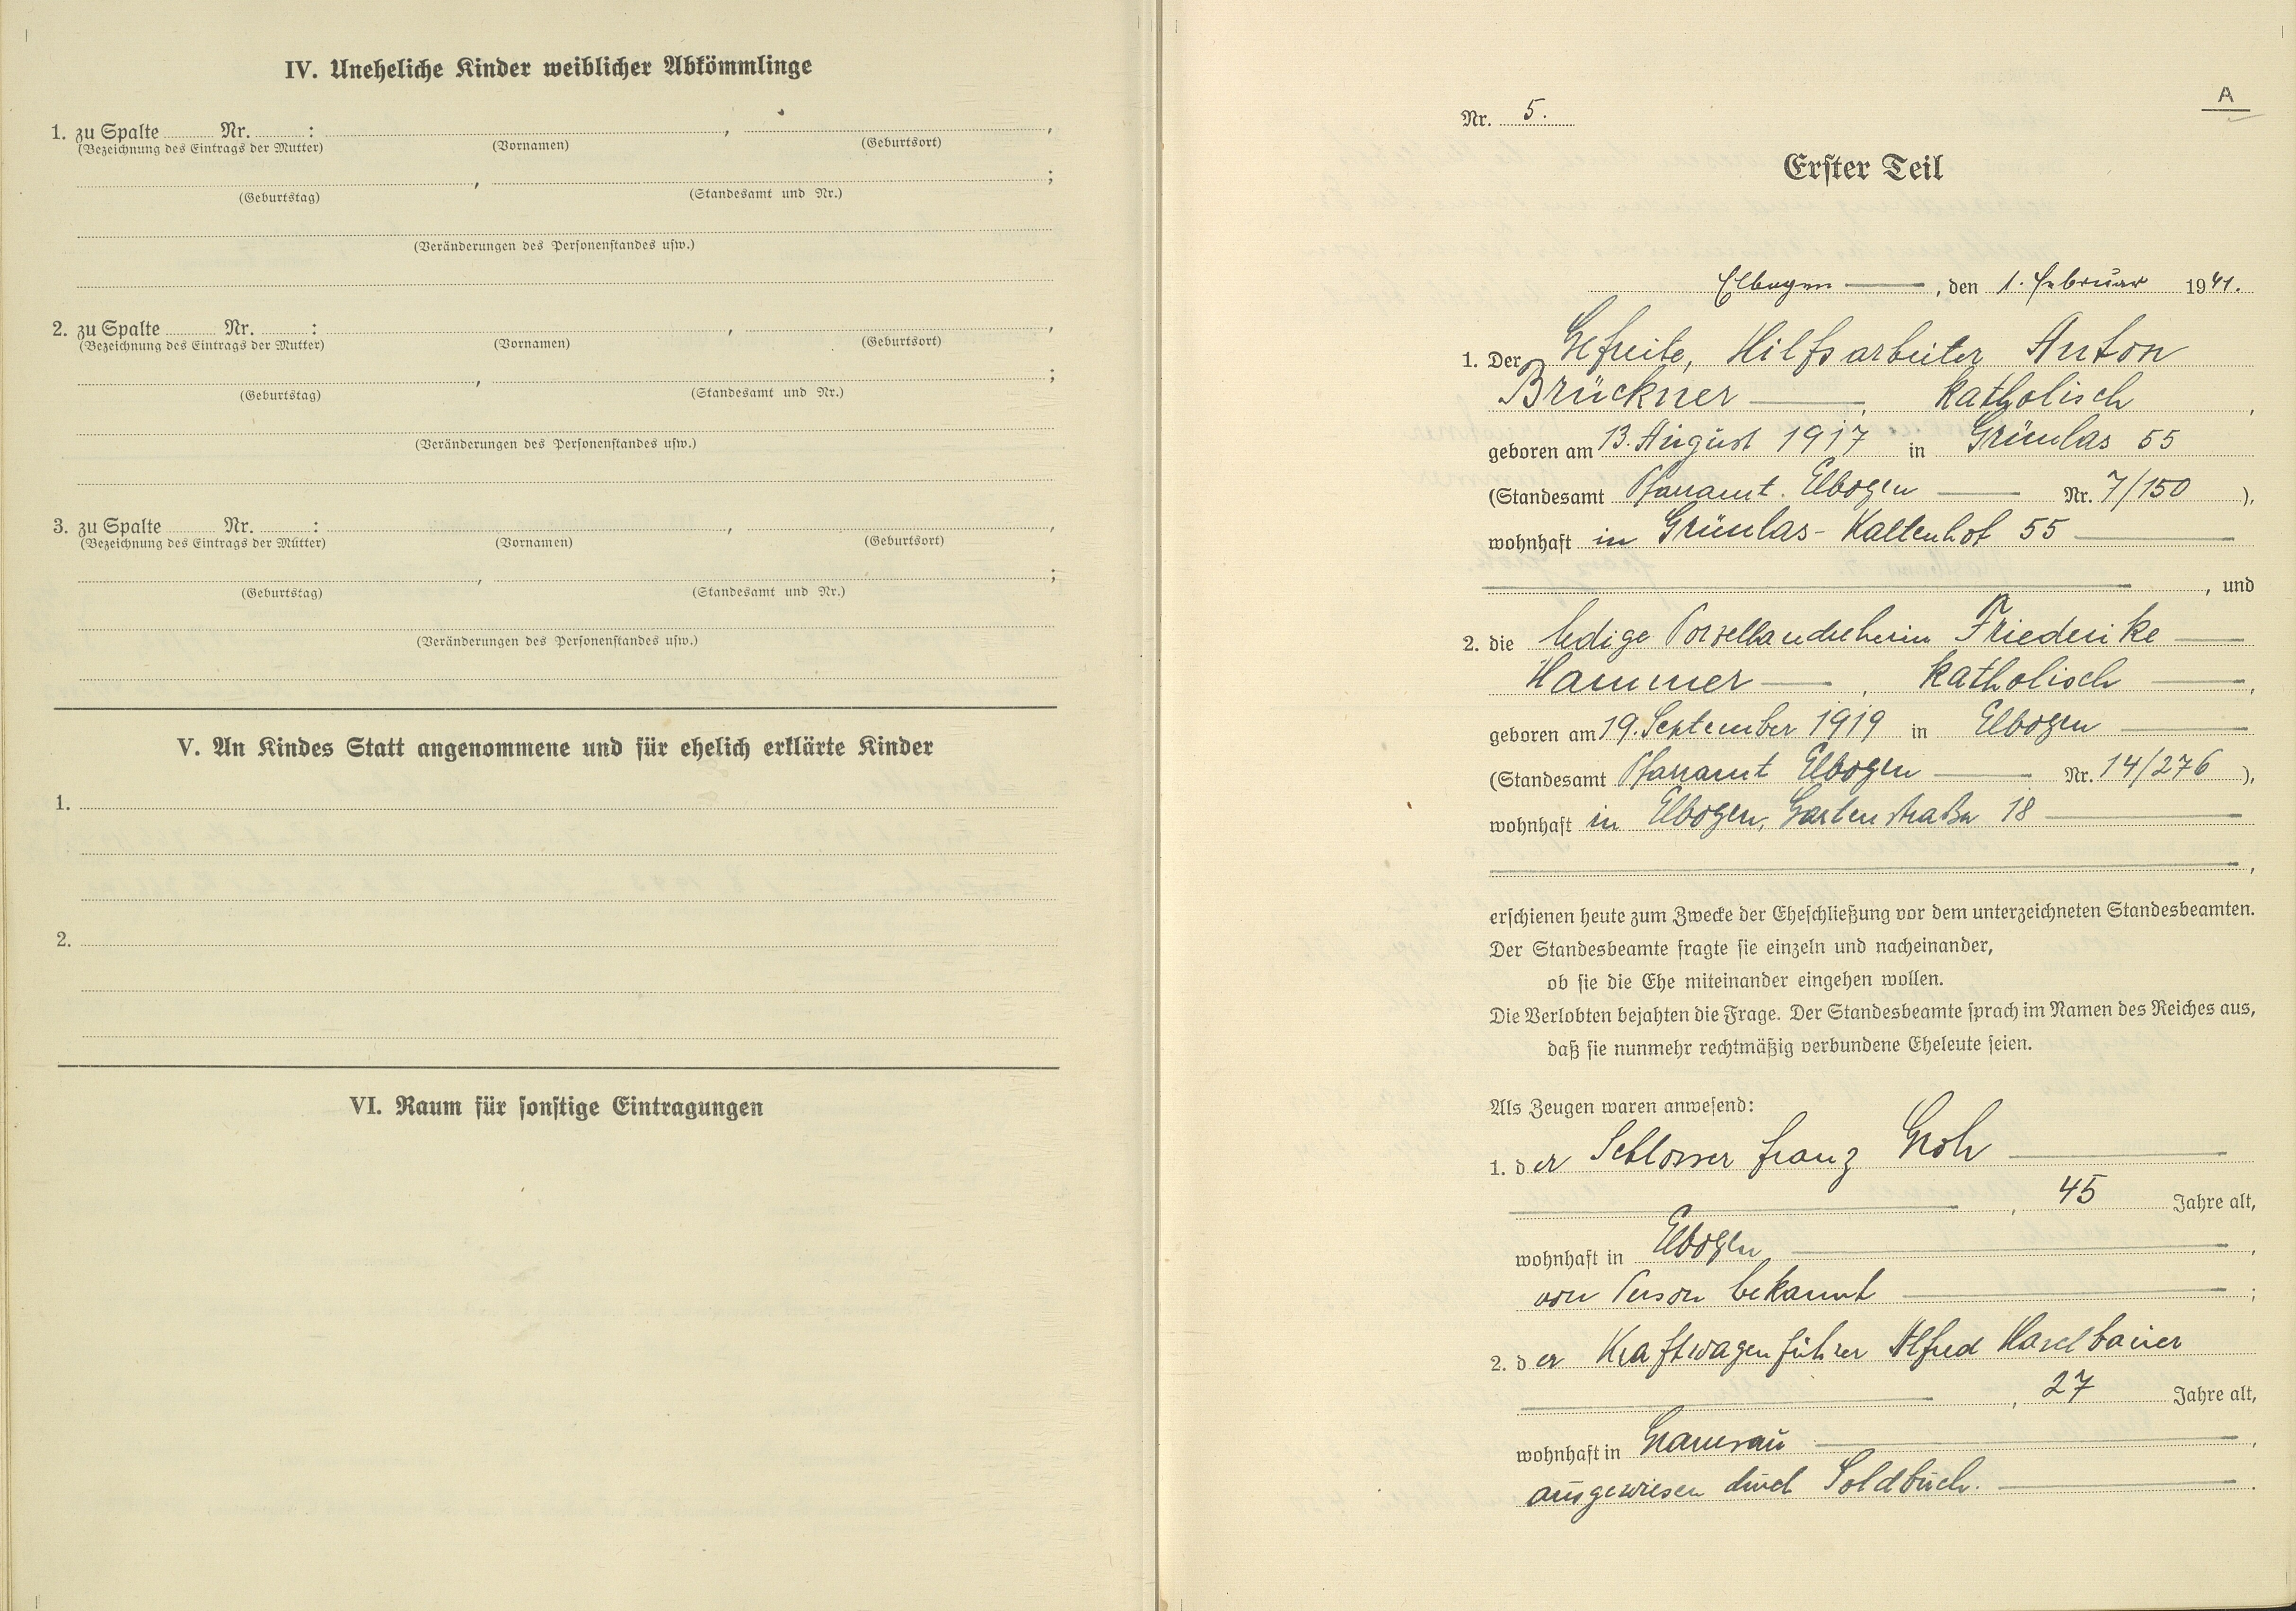 IV. Uneheliche Kinder weiblicher Abkömmlinge
1. zu Spalte ........ Nr. ........ : ........ , ........ ,
(Bezeichnung des Eintrags der Mutter) (Vornamen) (Geburtsort)
........ , ........ ;
(Geburtstag) (Standesamt und Nr.)
(Veränderungen des Personenstandes usw.)
2. zu Spalte ........ Nr. ........ : ........ , ........ ,
(Bezeichnung des Eintrags der Mutter) (Vornamen) (Geburtsort)
........ , ........ ;
(Geburtstag) (Standesamt und Nr.)
(Veränderungen des Personenstandes usw.)
3. zu Spalte ........ Nr. ........ : ........ , ........ ,
(Bezeichnung des Eintrags der Mutter) (Vornamen) (Geburtsort)
........ , ........ ;
(Geburtstag) (Standesamt und Nr.)
(Veränderungen des Personenstandes usw.)
V. An Kindes Statt angenommene und für ehelich erklärte Kinder
1.
2.
VI. Raum für sonstige Eintragungen
A
Nr. 5.
Erster Teil
Elbogen, den 1. Februar 1941.
1. Der Gefreite, Hilfsarbeiter Anton
Brückner, katholisch,
geboren am 13. August 1917 in Grünlas 55
(Standesamt Pfarramt. Elbogen Nr. 7/150),
wohnhaft in Grünlas-Kaltenhof 55
, und
2. die ledige Porzellandreherin Friederike
Hammer, katholisch,
geboren am 19. September 1919 in Elbogen
(Standesamt Pfarramt Elbogen Nr. 14/276),
wohnhaft in Elbogen, Gartenstraße 18
,
erschienen heute zum Zwecke der Eheschließung vor dem unterzeichneten Standesbeamten.
Der Standesbeamte fragte sie einzeln und nacheinander,
ob sie die Ehe miteinander eingehen wollen.
Die Verlobten bejahten die Frage. Der Standesbeamte sprach im Namen des Reiches aus,
daß sie nunmehr rechtmäßig verbundene Eheleute seien.
Als Zeugen waren anwesend:
1. der Schlosser Franz Groh
, 45 Jahre alt,
wohnhaft in Elbogen,
von Person bekannt ;
2. der Kraftwagenführer Alfred Haselbauer
, 27 Jahre alt,
wohnhaft in ,
ausgewiesen durch Soldbuch.